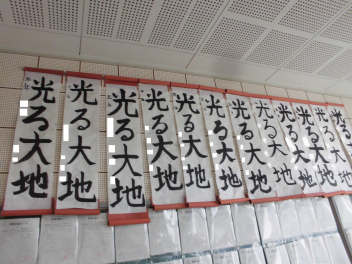 光る大地
光る大地
光る大地
光る大地
光る大地
光る大地
光る大地
光る大地
光る大地
光る大地
光る大地
光る大地